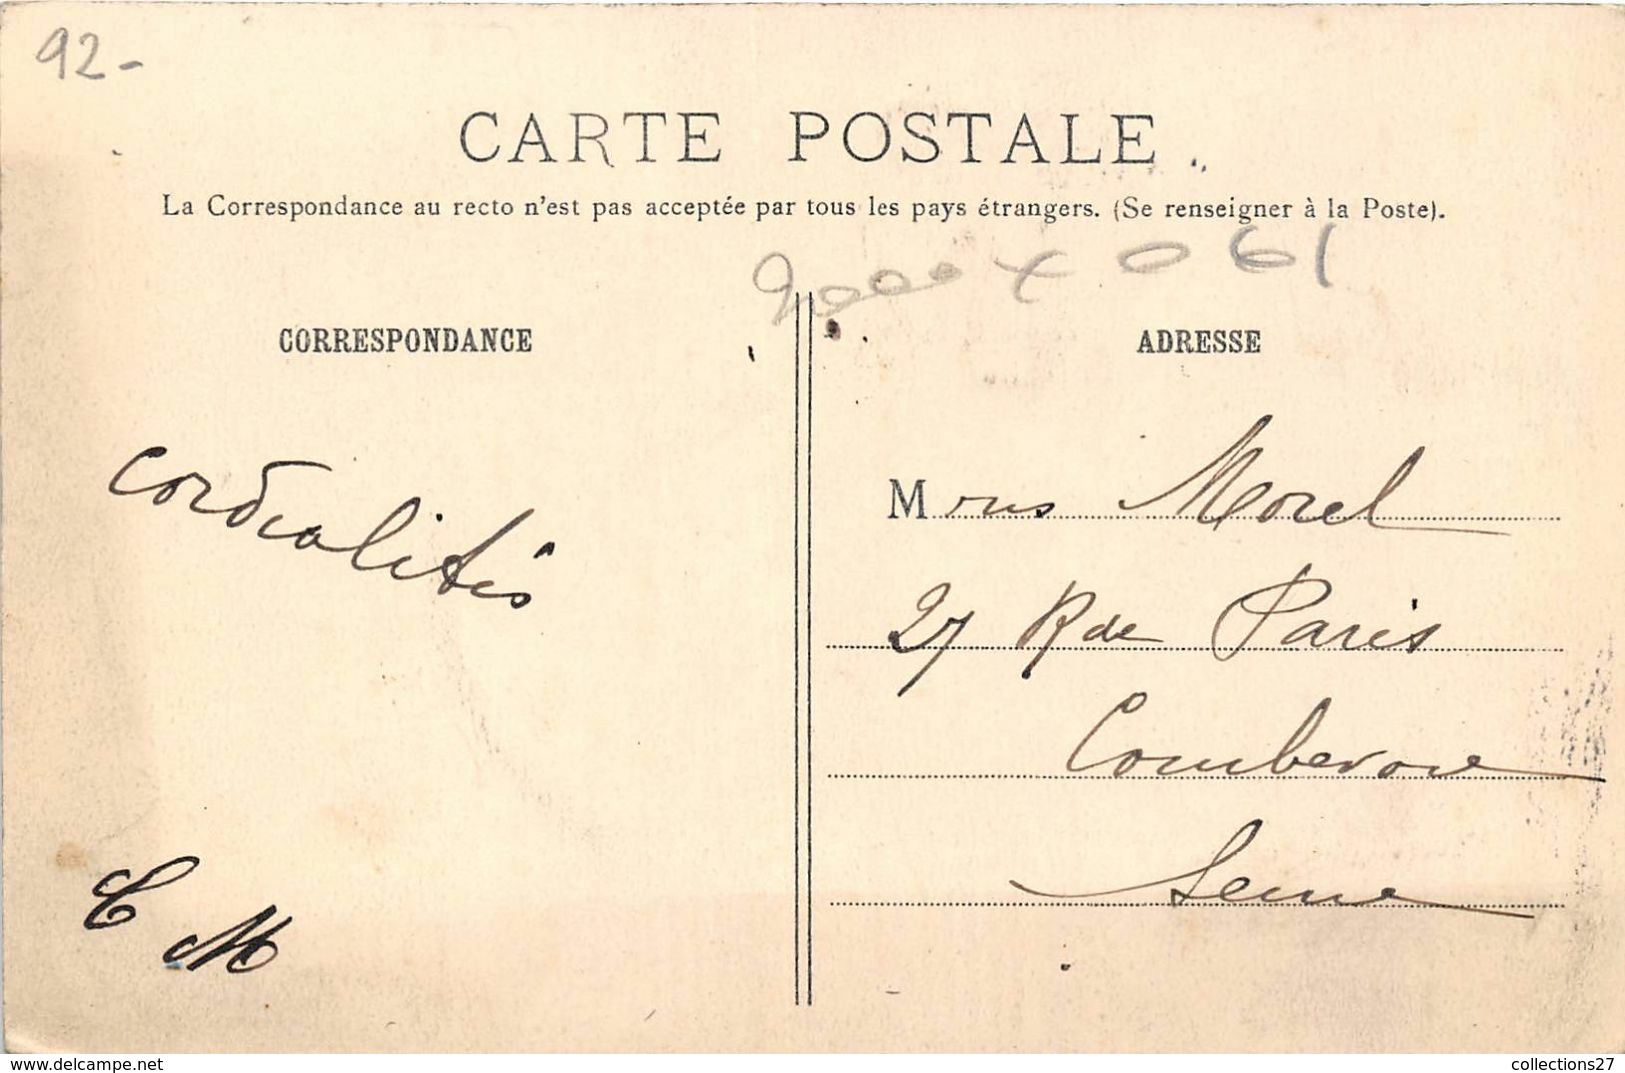 92-
CARTE POSTALE
La Correspondance au recto n'est pas acceptée par tous les pays étrangers. (Se renseigner à la Poste).
061
CORRESPONDANCE
cordialités
C M
ADRESSE
Mons Morel
27 R de Paris
Courbevoie
Seine
www.delcampe.net
collections27